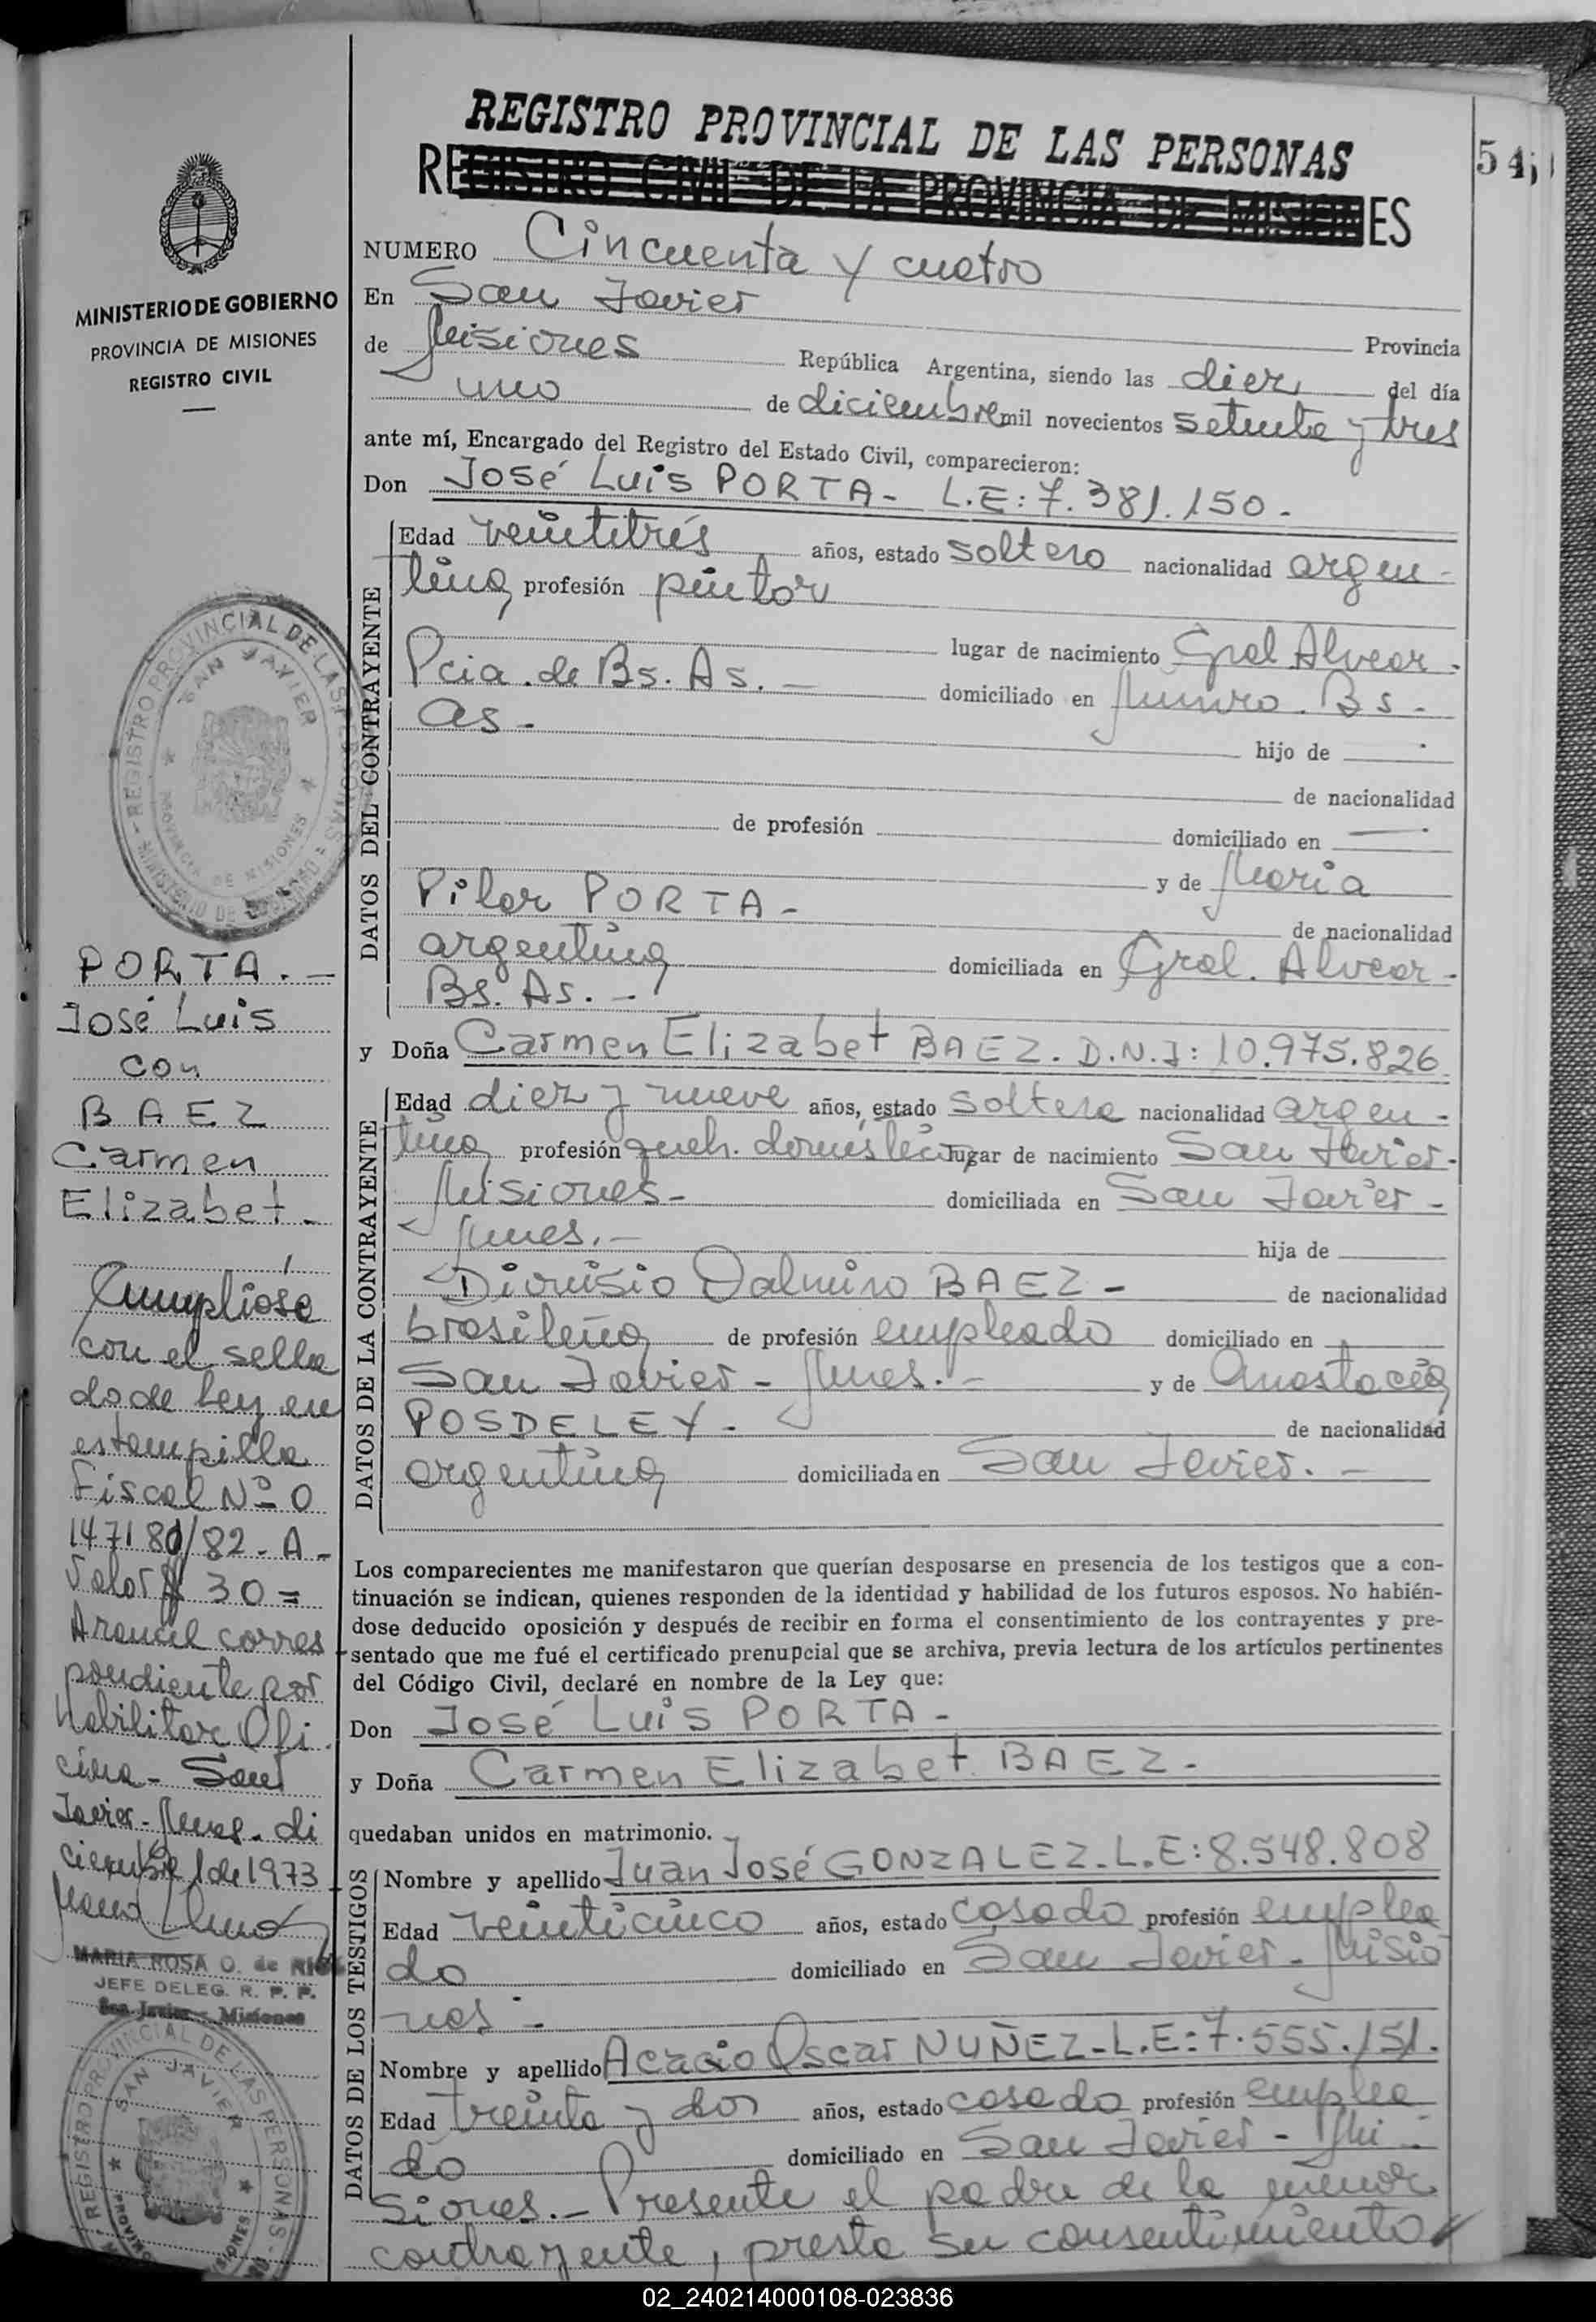 REGISTRO PROVINCIAL DE LAS PERSONAS
REGISTRO CIVIL DE LA PROVINCIA DE MISIONES
54
MINISTERIO DE GOBIERNO
PROVINCIA DE MISIONES
REGISTRO CIVIL
NUMERO Cincuenta y cuatro
En San Javier
Provincia
de Misiones República Argentina, siendo las diez del día
uno de diciembre mil novecientos setenta y tres
ante mí, Encargado del Registro del Estado Civil, comparecieron:
Don José Luis PORTA- L.E: 7.381.150.-
DATOS DEL CONTRAYENTE
Edad veintitrés años, estado soltero nacionalidad argen-
tina profesión pintor
lugar de nacimiento Gral Alvear-
Pcia. de Bs. As.- domiciliado en Munro. Bs.-
as.-
hijo de
de nacionalidad
de profesión domiciliado en
y de Maria
Pilar PORTA-
de nacionalidad
argentina domiciliada en Gral. Alvear-
Bs. As.-
y Doña Carmen Elizabet BAEZ. D.N.I: 10.975.826
DATOS DE LA CONTRAYENTE
Edad diez y nueve años, estado soltera nacionalidad argen-
tina profesión queh. domésticos lugar de nacimiento San Javier-
Misiones- domiciliada en San Javier-
Mnes.-
hija de
Dionisio Dalmiro BAEZ-
de nacionalidad
brasileña de profesión empleado domiciliado en
San Javier- Mnes.- y de Anastacia
POSDELEY-
de nacionalidad
argentina domiciliada en San Javier.-
Los comparecientes me manifestaron que querían desposarse en presencia de los testigos que a con-
tinuación se indican, quienes responden de la identidad y habilidad de los futuros esposos. No habién-
dose deducido oposición y después de recibir en forma el consentimiento de los contrayentes y pre-
sentado que me fué el certificado prenupcial que se archiva, previa lectura de los artículos pertinentes
del Código Civil, declaré en nombre de la Ley que:
Don José Luis PORTA-
y Doña Carmen Elizabet BAEZ-
quedaban unidos en matrimonio.
DATOS DE LOS TESTIGOS
Nombre y apellido Juan José GONZALEZ-L.E: 8.548.808
Edad veinticinco años, estado casado profesión emplea
do domiciliado en San Javier- Misio
nes-
Nombre y apellido Acacio Oscar NUÑEZ-L.E: 7.555.151.
Edad treinta y dos años, estado casado profesión emplea
do domiciliado en San Javier- Mi-
siones.- Presente el padre de la menor
contrayente, presta su consentimiento
PORTA.-
José Luis
con
BAEZ
Carmen
Elizabet-
Cumplióse
con el sella
do de Ley en
estampilla
Fiscal Nº 0
147181/82-A-
Valor $ 30=
Arancel corres
pondiente por
Habilitar Ofi
cina- San
Javier- Mnes. di
ciembre 1 de 1973
MARIA ROSA O. de
JEFE DELEG. R. P. P.
San Javier - Misiones
REGISTRO PROVINCIAL DE LAS PERSONAS
SAN JAVIER
PROVINCIA DE MISIONES
MINISTERIO DE GOBIERNO
REGISTRO PROVINCIAL DE LAS PERSONAS
SAN JAVIER
02_240214000108-023836